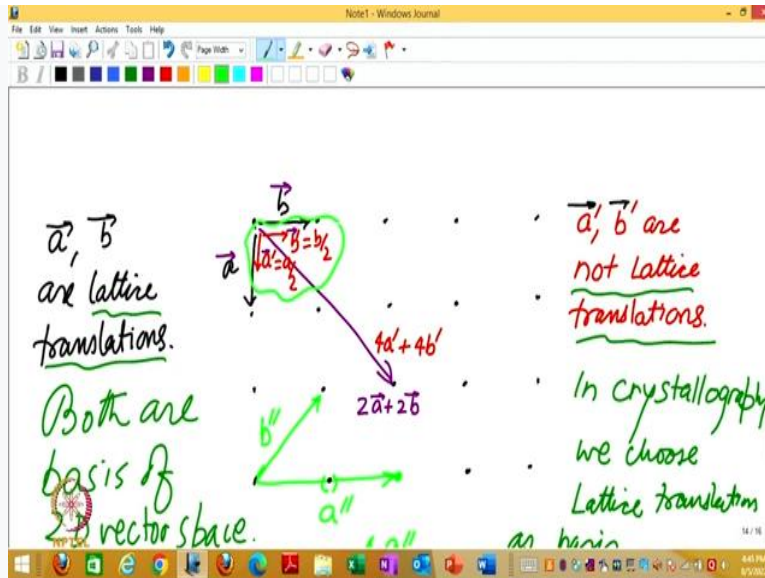 Note1 - Windows Journal
File Edit View Insert Actions Tools Help
Page Width
B I
a, b
are lattice
translations.
Both are
basis of
2D vector space.
NPTEL
b
a
b'=b/2
a'=a/2
4a'+4b'
2a+2b
b''
a''
a', b' are
not Lattice
translations.
In crystallography
we choose
Lattice translation
as basis
14 / 16
4:45 PM